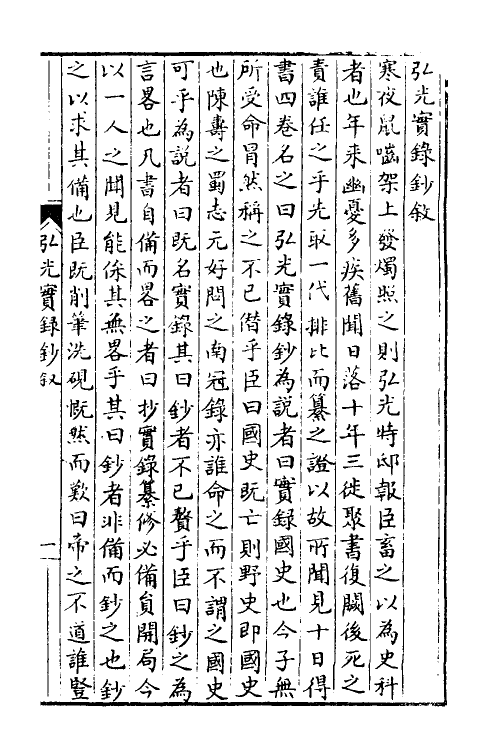 弘光實錄鈔敘
寒夜鼠嚙架上發燭照之則弘光時邸報臣畜之以為史科
者也年来幽憂多疾舊聞日落十年三徙聚書復闕後死之
責誰任之乎先取一代排比而纂之證以故所聞見十日得
書四卷名之曰弘光實錄鈔為說者曰實録國史也今子無
所受命冒然稱之不已僣乎臣曰國史既亡則野史即國史
也陳壽之蜀志元好問之南冠錄亦誰命之而不謂之國史
可乎為說者曰既名實錄其曰鈔者不已贅乎臣曰鈔之為
言畧也凡書自備而畧之者曰抄實錄纂修必備員開局今
以一人之聞見能保其無畧乎其曰鈔者非備而鈔之也鈔
之以求其備也臣既削筆洗硯慨然而歎曰帝之不道誰豎
弘光實錄鈔叙
一